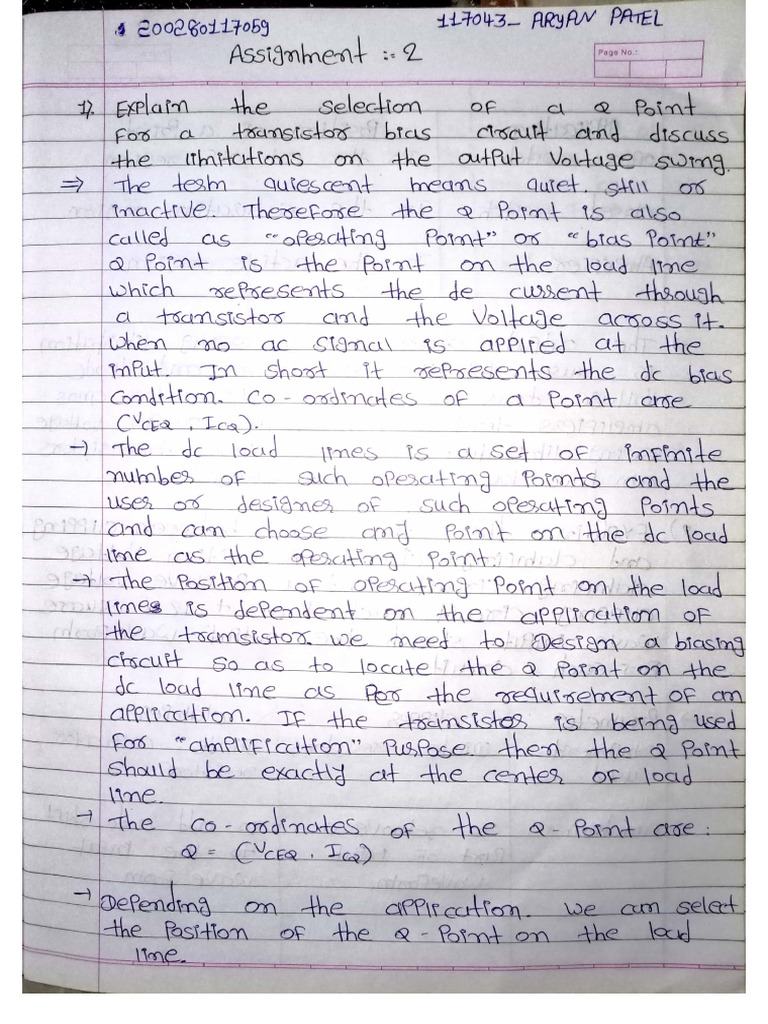 200280117059 117043- ARYAN PATEL
Assignment :- 2
Page No.:
1). Explain the selection of a Q Point
For a transistor bias circuit and discuss
the limitations on the output Voltage swing.
⇒ The term quiescent means quiet. still or
inactive. Therefore the Q Point is also
called as "operating Point" or "bias Point."
Q Point is the Point on the load line
which represents the de current through
a transistor and the Voltage across it.
when no ac signal is applied at the
input. In short it represents the dc bias
condition. Co-ordinates of a Point are
(VCEQ, ICQ).
→ The dc load lines is a set of infinite
number of such operating Points and the
user or designer of such operating Points
and can choose any Point on the dc load
line as the operating Point.
→ The Position of operating Point on the load
lines is dependent on the application of
the transistor. we need to Design a biasing
circuit so as to locate the Q Point on the
dc load line as per the requirement of an
application. If the transistor is being used
For "amplification" Purpose. then the Q Point
should be exactly at the center of load
line.
→ The co-ordinates of the Q-Point are:
Q = (VCEQ, ICQ)
→ Depending on the application. we can select
the Position of the Q-Point on the load
line.